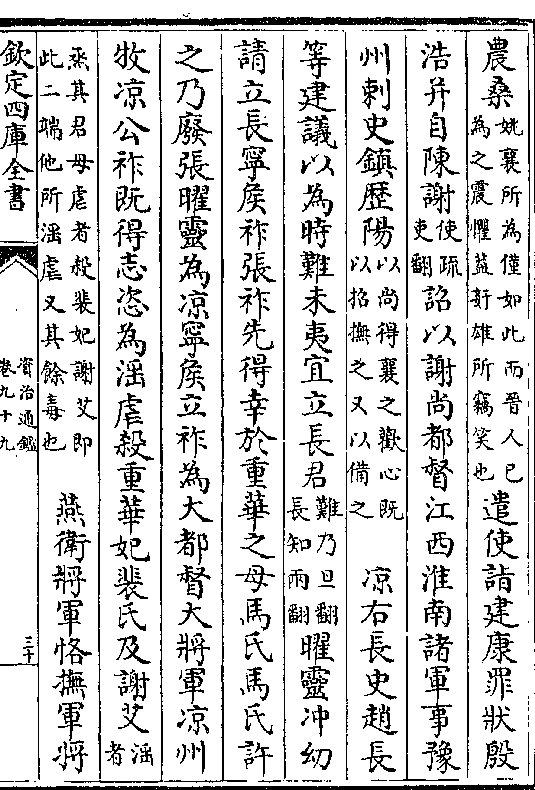 農桑姚襄所為僅如此而晉人已為之震懼蓋奸雄所竊笑也遣使詣建康罪狀殷
浩并自陳謝使疏吏翻詔以謝尚都督江西淮南諸軍事豫
州刺史鎮歷陽以尚得襄之歡心既以招撫之又以備之涼右長史趙長
等建議以為時難未夷宜立長君難乃旦翻長知兩翻曜靈冲幼
請立長寧侯祚張祚先得幸於重華之母馬氏馬氏許
之乃廢張曜靈為涼寧侯立祚為大都督大將軍涼州
牧涼公祚既得志恣為淫虐殺重華妃裴氏及謝艾淫者
烝其君母虐者殺裴妃謝艾即此二端他所淫虐又其餘毒也燕衛將軍恪撫軍將
欽定四庫全書
資治通鑑
卷九十九
三十